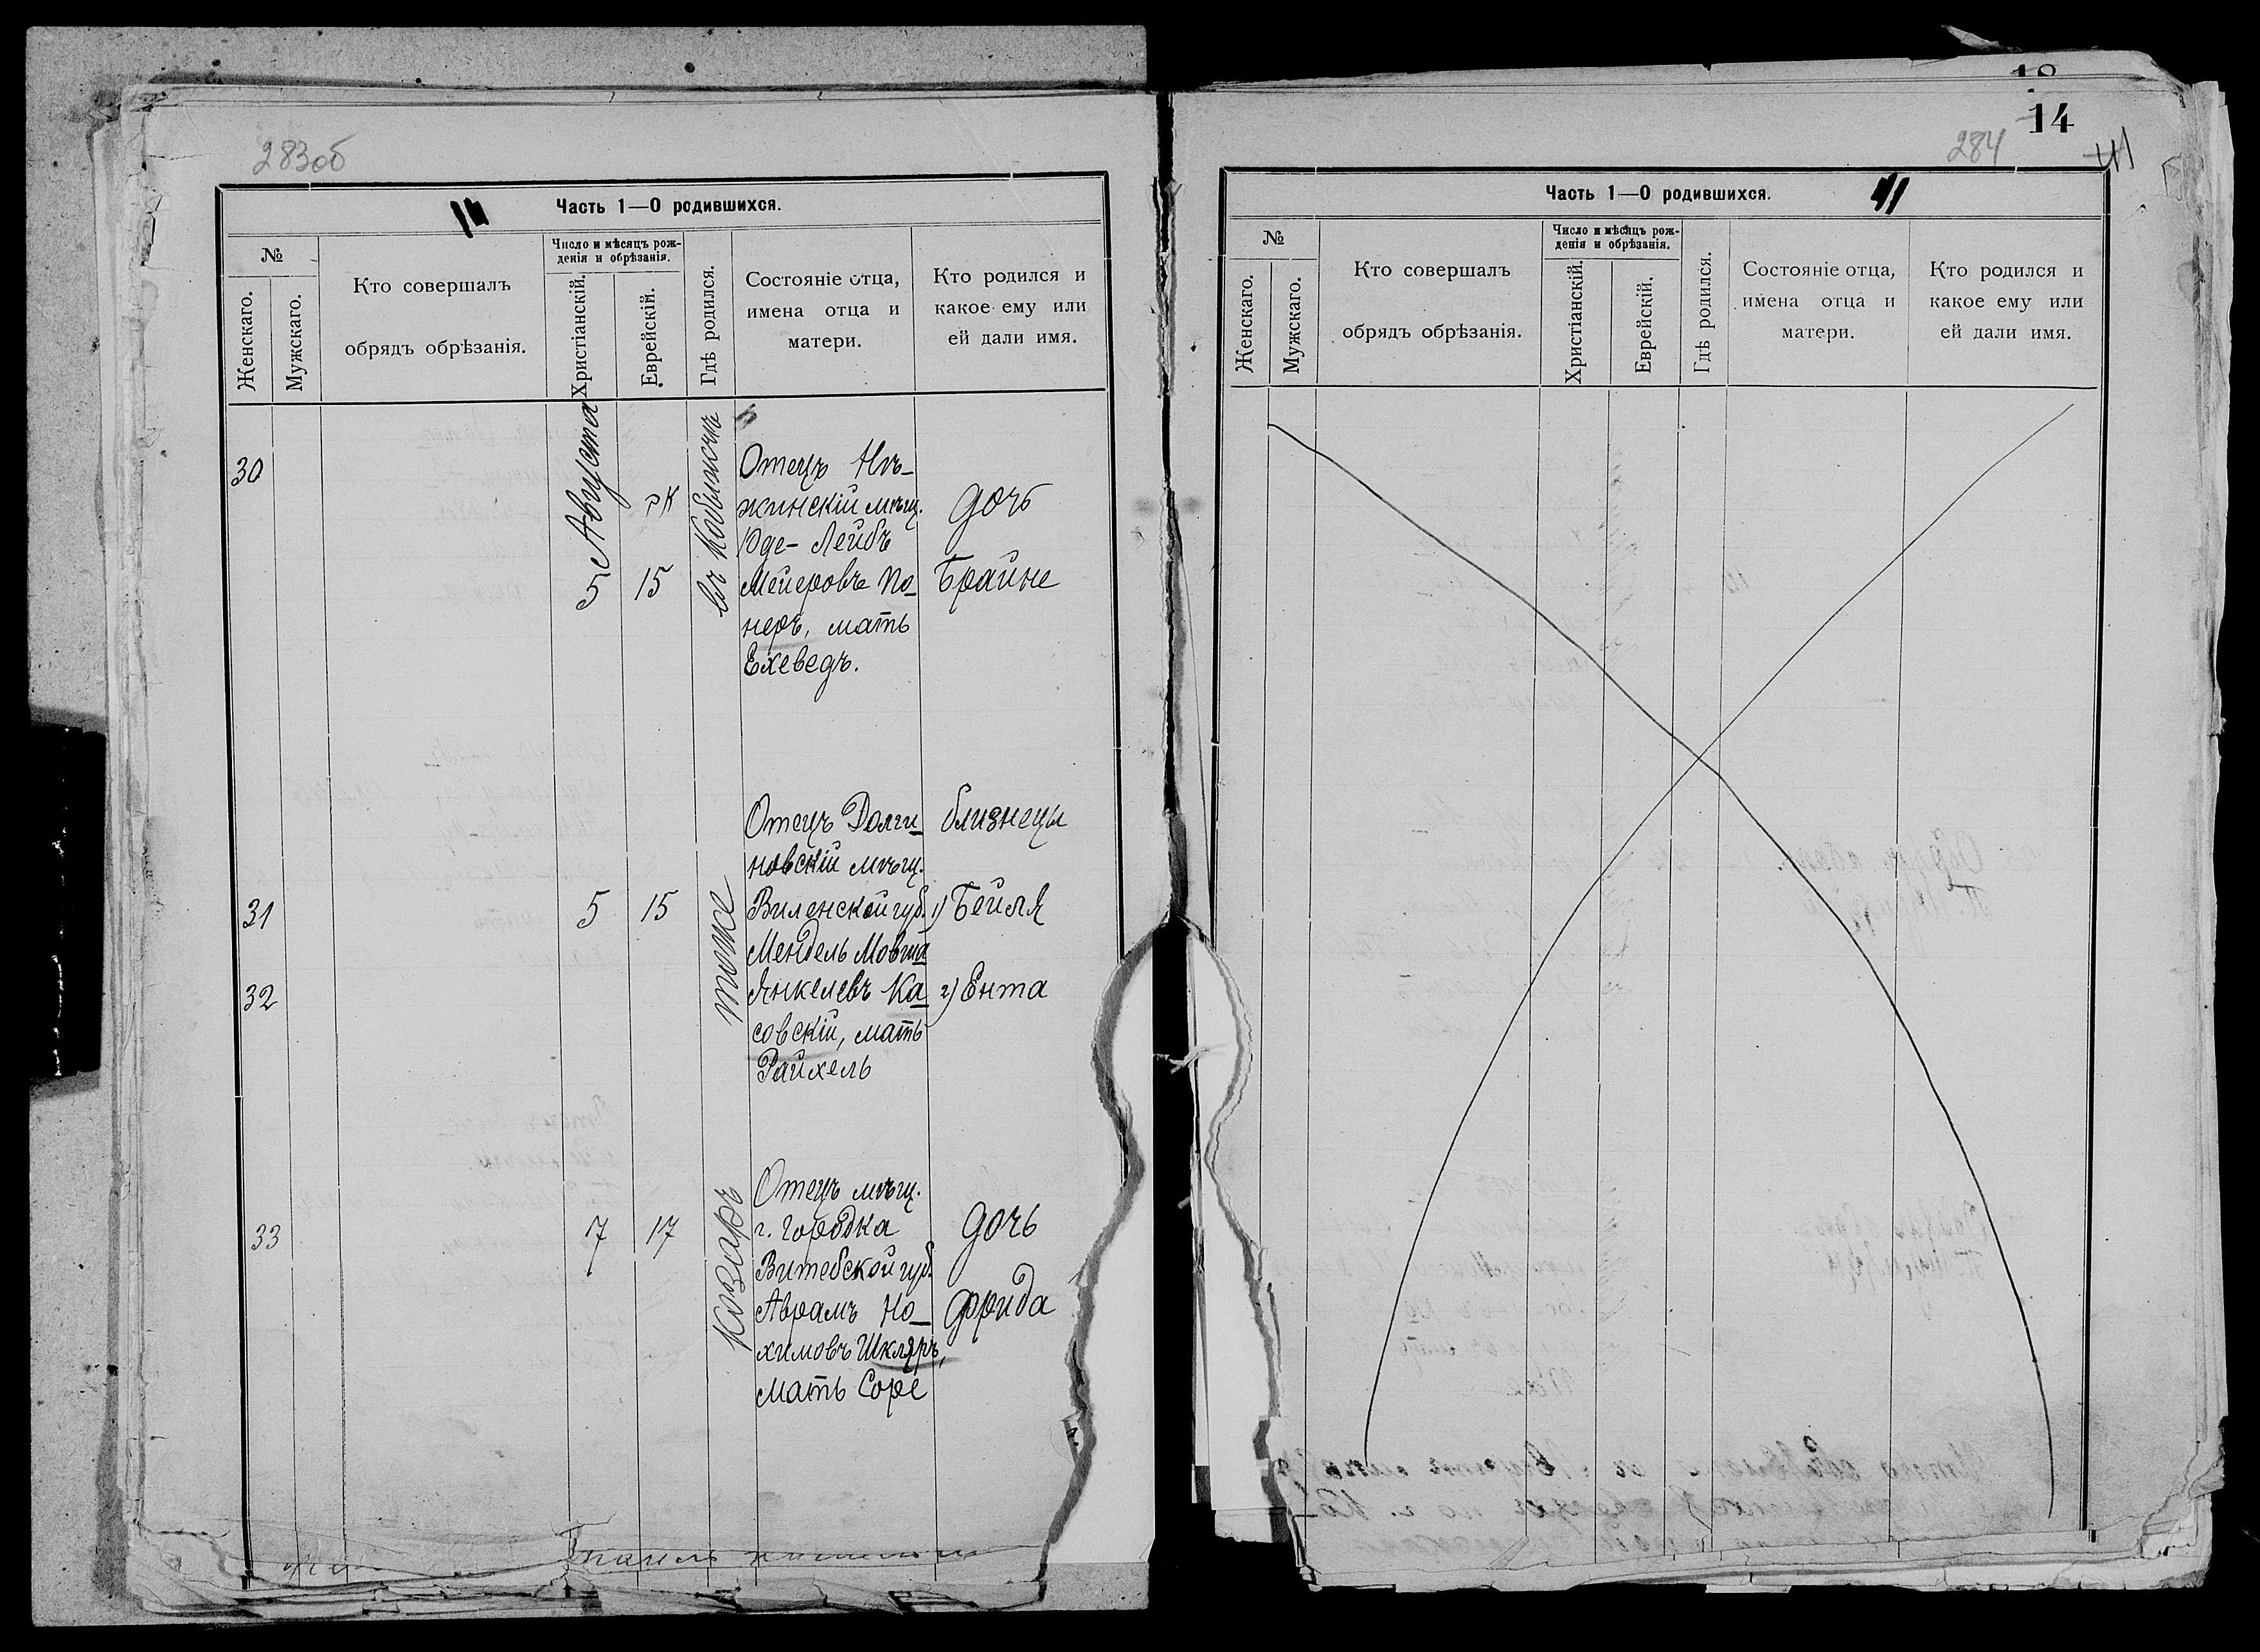 283об
Часть 1—О родившихся.
№
Женскаго.
Мужскаго.
Кто совершалъ
обрядъ обрѣзанія.
Число и мѣсяцъ рож-
денія и обрѣзанія.
Христіанскій.
Еврейскій.
Гдѣ родился.
Состояніе отца,
имена отца и
матери.
Кто родился и
какое ему или
ей дали имя.
30
Августа
5
15
Отецъ Нѣ-
жинскій мѣщ.
Юде-Лейбъ
Мейеровъ По-
неръ, мать
Ехеведъ.
дочь
Брайне
31
32
5
15
тоже
Отецъ Долги-
новскій мѣщ.
Виленской губ.
Мендель Мовша
Янкелевъ Ка-
совскій, мать
Райхель
близнецы
1) Бейля
2) Ента
33
7
17
Козаръ
Отецъ мѣщ.
г. Городка
Витебской губ.
Аврамъ Но-
химовъ Шкляръ,
мать Соре
дочь
Фрида
14
284
41
Часть 1—О родившихся.
41
№
Женскаго.
Мужскаго.
Кто совершалъ
обрядъ обрѣзанія.
Число и мѣсяцъ рож-
денія и обрѣзанія.
Христіанскій.
Еврейскій.
Гдѣ родился.
Состояніе отца,
имена отца и
матери.
Кто родился и
какое ему или
ей дали имя.